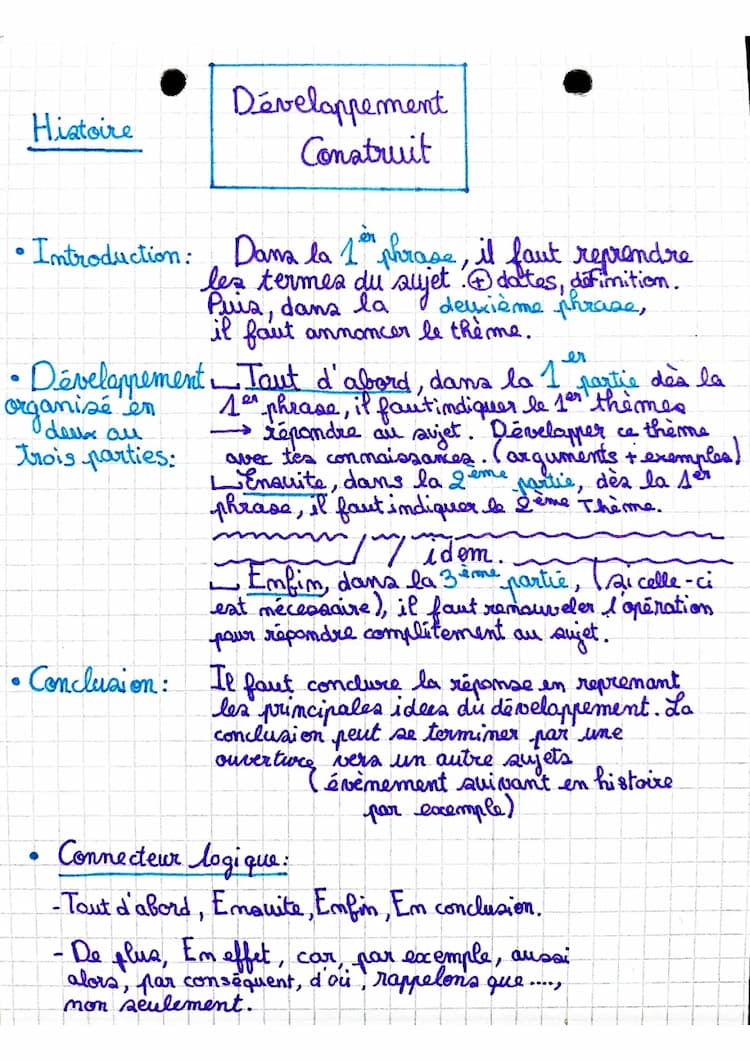 Histoire
Développement
Construit
• Introduction:
Dans la 1èr phrase, il faut reprendre
les termes du sujet. + dates, définition.
Puis, dans la deuxième phrase,
il faut annoncer le thème.
• Développement
organisé en
deux ou
trois parties:
Tout d'abord, dans la 1er partie dès la
1er phrase, il faut indiquer le 1er thèmes
→ répondre au sujet. Développer ce thème
avec tes connaissances. (arguments + exemples)
Ensuite, dans la 2ème partie, dès la 1er
phrase, il faut indiquer le 2ème Thème.
// idem.
Enfin, dans la 3ième partie, (si celle-ci
est nécessaire), il faut renouveler l'opération
pour répondre complètement au sujet.
• Conclusion:
Il faut conclure la réponse en reprenant
les principales idees du développement. La
conclusion peut se terminer par une
ouverture vers un autre sujets
(évènement suivant en histoire
par exemple)
• Connecteur logique:
- Tout d'abord, Ensuite, Enfin, En conclusion.
- De plus, En effet, car, par exemple, aussi
alors, par conséquent, d'où, rappelons que ....,
non seulement.